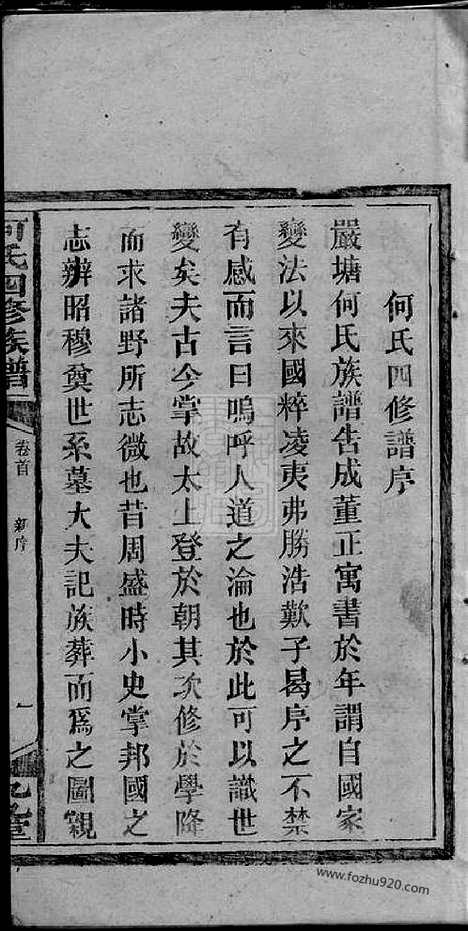 何氏四修譜序
嚴塘何氏族譜告成董正寓書於年謂自國家
變法以來國粹凌夷弗勝浩歎子曷序之不禁
有感而言曰嗚呼人道之淪也於此可以識世
變矣夫古今掌故太上登於朝其次修於學降
而求諸野所志微也昔周盛時小史掌邦國之
志辦昭穆奠世系墓大夫記族葬而爲之圖親
何氏四修族譜
卷首
新序
一
www.fozhu920.com